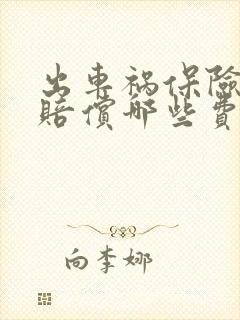 出車禍保險
賠償哪些費
向李娜